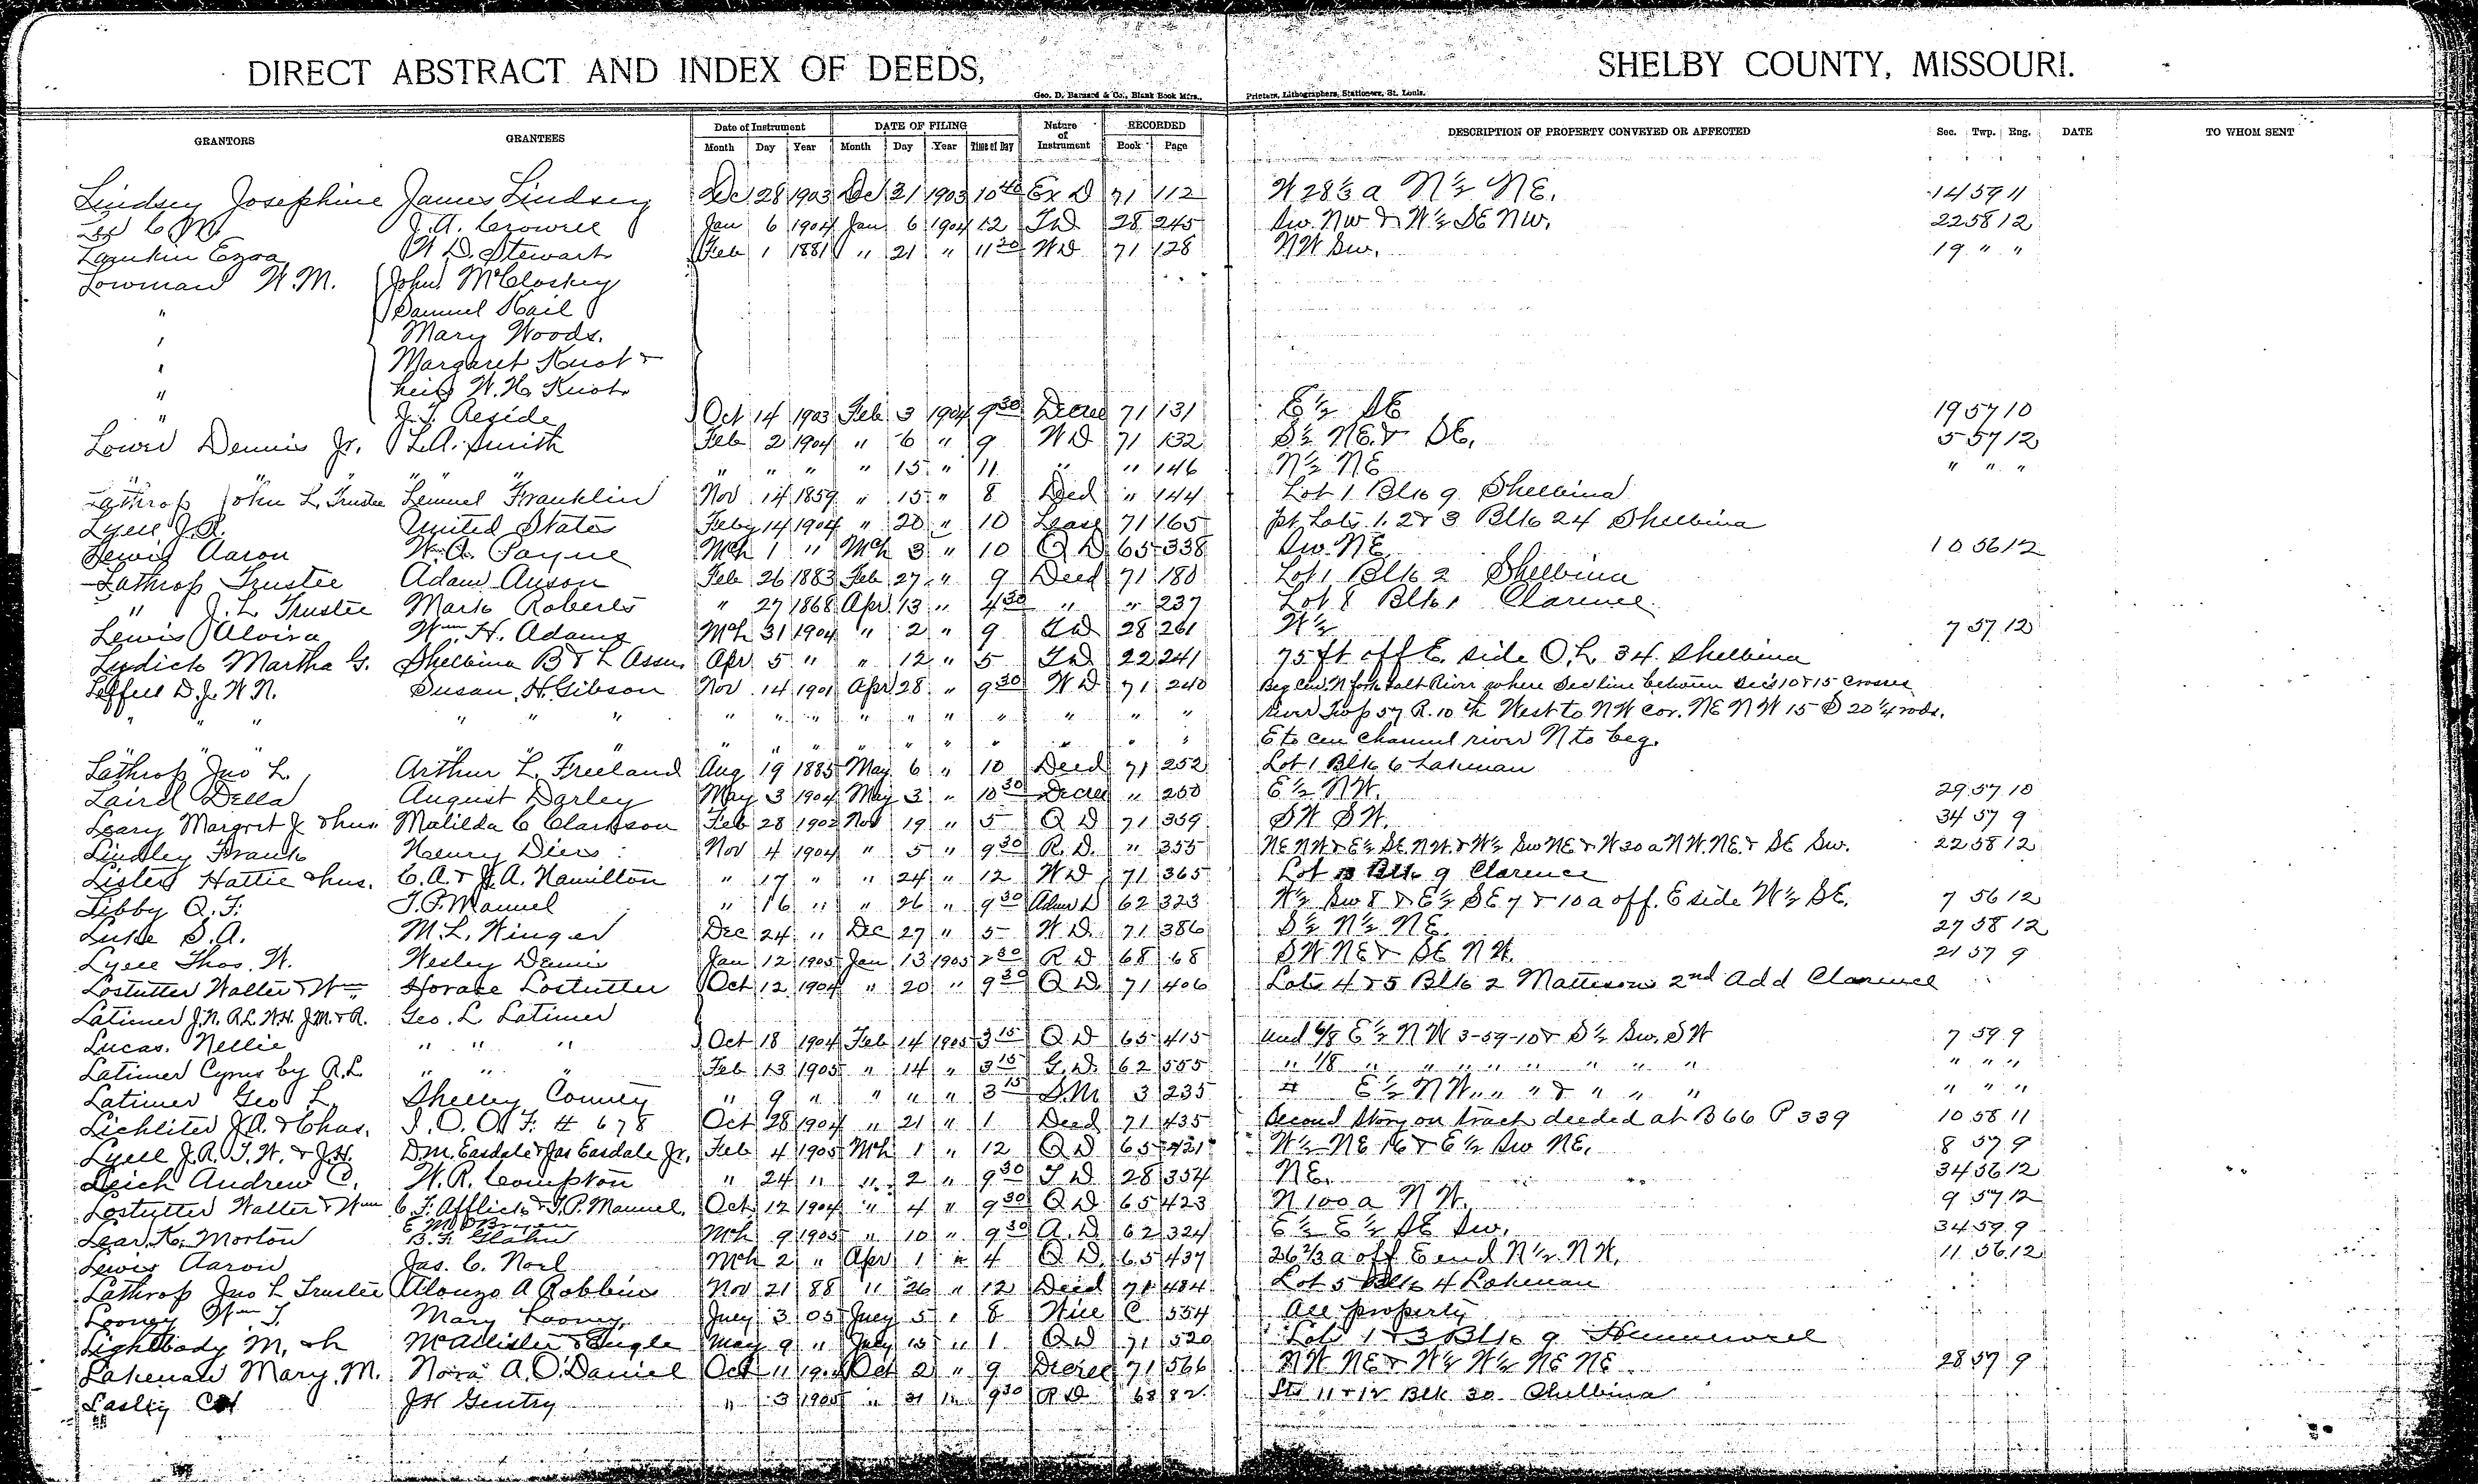 DIRECT ABSTRACT AND INDEX OF DEEDS, SHELBY COUNTY, MISSOURI.
Geo. D. Barnard & Co., Blank Book Mfrs., Printers, Lithographers, Stationers, St. Louis.
GRANTORS GRANTEES Date of Instrument DATE OF FILING Nature of Instrument RECORDED DESCRIPTION OF PROPERTY CONVEYED OR AFFECTED Sec. Twp. Rng. DATE TO WHOM SENT
Month Day Year Month Day Year Time of Day Book Page
Lindsey Josephine James Lindsey Dec 28 1903 Dec 31 1903 10 40 Ex D 71 112 W 28⅓ a N½ NE. 14 59 11
C M. J. A. Crowell Jan 6 1904 Jan 6 1904 12 TD 28 245 Sw. NW & W½ SE NW. 22 58 12
Lamkin Ezra W. D. Stewart Feb 1 1881 " 21 " 11 30 WD 71 128 NW Sw. 19 " "
Lowman W. M. John McCloskey
" Samuel Kail
" Mary Woods.
" Margaret Knot &
" heirs W. H. Knot
" J. T. Aeside Oct 14 1903 Feb 3 1904 9 30 Decree 71 131 E½ SE 19 57 10
Lower Dennis Jr. L. A. Smith Feb 2 1904 " 6 " 9 WD 71 132 S½ NE. & SE. 5 57 12
" " " " " " " 15 " 11 " " 146 N½ NE " " "
Lathrop John L. Trustee Lemuel Franklin Nov 14 1859 " 15 " 8 Deed " 144 Lot 1 Blk 9 Shelbina
Lyell J. R. United States Feby 14 1904 " 20 " 10 Lease 71 165 pt Lots 1. 2 & 3 Blk 24 Shelbina
Lewis Aaron W. A. Payne Mch 1 " Mch 3 " 10 Q D 65 338 Sw. NE 10 56 12
Lathrop Trustee Adam Anson Feb 26 1883 Feb 27 " 9 Deed 71 180 Lot 1 Blk 2 Shelbina
" J. L Trustee Mark Roberts " 27 1868 Apr 13 " 4 30 " " 237 Lot 8 Blk 1 Clarence
Lewis Alvira Wm. H. Adams Mch 31 1904 " 2 " 9 TD 28 261 W½ 7 57 12
Lydick Martha G. Shelbina B & L Assn. Apr 5 " " 12 " 5 TD 22 241 75 ft off E. side O. L. 34 Shelbina
D. J. W. N. Susan H. Gibson Nov 14 1901 Apr 28 " 9 30 WD 71 240 Beg Cen. N fork Salt River where Sec line between Sec's 10 & 15 crosses
" " " " " " " " " " " " " " " " River Twp 57 R. 10 th West to NW cor. NE NW 15 S 20¼ rods.
" " " " " " " " " " " " " " " " E to cen channel river N to beg.
Lathrop Jno L. Arthur L. Freeland Aug 19 1885 May 6 " 10 Deed 71 252 Lot 1 Blk 6 Lakenan
Laird Della August Darley May 3 1904 May 3 " 10 30 Decree " 250 E½ NW. 29 57 10
Leary Margret J & hus. Matilda C Clarkson Feb 28 1902 Nov 19 " 5 Q D 71 359 SW SW. 34 57 9
Lindley Frank Henry Diers Nov 4 1904 " 5 " 9 30 R. D. " 355 NE NW & E½ SE NW. & W½ Sw NE & W 20 a NW. NE. & SE Sw. 22 58 12
Lister Hattie & hus. C. A. & J. A. Hamilton " 17 " " 24 " 12 WD 71 365 Lot Blk 9 Clarence
Libby Q. F. T. P. Manuel " 16 " " 26 " 9 30 Adm D 62 323 W½ Sw 8 & E½ SE 7 & 10 a off. E side W½ SE. 7 56 12
Luke S. A. M. L. Winger Dec 24 " Dec 27 " 5 W D. 71 386 S½ N½ NE. 27 58 12
Lyell Thos. W. Wesley Jan 12 1905 Jan 13 1905 2 30 R D 68 68 SW NE & SE NW. 21 57 9
Lostutter Walter & Wm Horace Lostutter Oct 12 1904 " 20 " 9 30 Q D. 71 406 Lots 4 & 5 Blk 2 Mattison's 2nd Add Clarence
Latimer J. N. R. L. W. H. J. M. & R. Geo. L Latimer
Lucas. Nellie " " " Oct 18 1904 Feb 14 1905 3 15 Q D 65 415 und 6/8 E½ NW 3-59-10 & S½ Sw. SW 7 59 9
Latimer Cyrus by R. L. " " " Feb 13 1905 " 14 " 3 15 G. D. 62 555 " 1/8 " " " " " " " " " "
Latimer Geo L. Shelby County " 9 " " " " 3 15 S. M. 3 235 E½ NW " " & " " " " " "
Lichliter J. A. & Chas. I. O. O. F. # 678 Oct 28 1904 " 21 " 1 Deed 71 435 Second Story on tract deeded at B 66 P 339 10 58 11
Lyell J. R. T. W. & J. H. D. M. Easdale & Jas Easdale Jr. Feb 4 1905 Mch 1 " 12 QD 65 421 W½ NE 16 & E½ Sw NE. 8 57 9
Leich Andrew C. W. R. Compton " 24 " " 2 " 9 30 T D 28 354 NE. 34 56 12
Lostutter Walter & Wm C. F. Afflick & T. P. Manuel. Oct 12 1904 " 4 " 9 30 Q D 65 423 N 100 a NW. 9 57 12
Lear K. Morton B. F. Glahn Mch 9 1905 " 10 " 9 30 A. D 62 324 E½ E½ SE Sw. 34 59 9
Lewis Aaron Jas. C. Noel Mch 2 " Apr 1 " 4 Q D. 65 437 26⅔ a off E end N½ NW. 11 56 12
Lathrop Jno L Trustee Alonzo A Robbins Nov 21 88 " 26 " 12 Deed 71 484 Lot 5 Blk 4 Lakenan
Looney Wm T. Mary Looney July 3 05 July 5 " 8 Will C 554 All property
Lightbody M. & h McAllister & Engle May 9 " July 15 " 1 QD 71 520 Lots 1 & 3 Blk 9 Hunnewell
Lakenan Mary M. Nora A. O'Daniel Oct 11 Oct 2 " 9 Decree 71 566 NW NE & W½ W½ NE NE 28 57 9
Lasley J H Gentry " 3 1905 " 31 " 9 30 R D 68 82 Lts 11 & 12 Blk 30 Shelbina